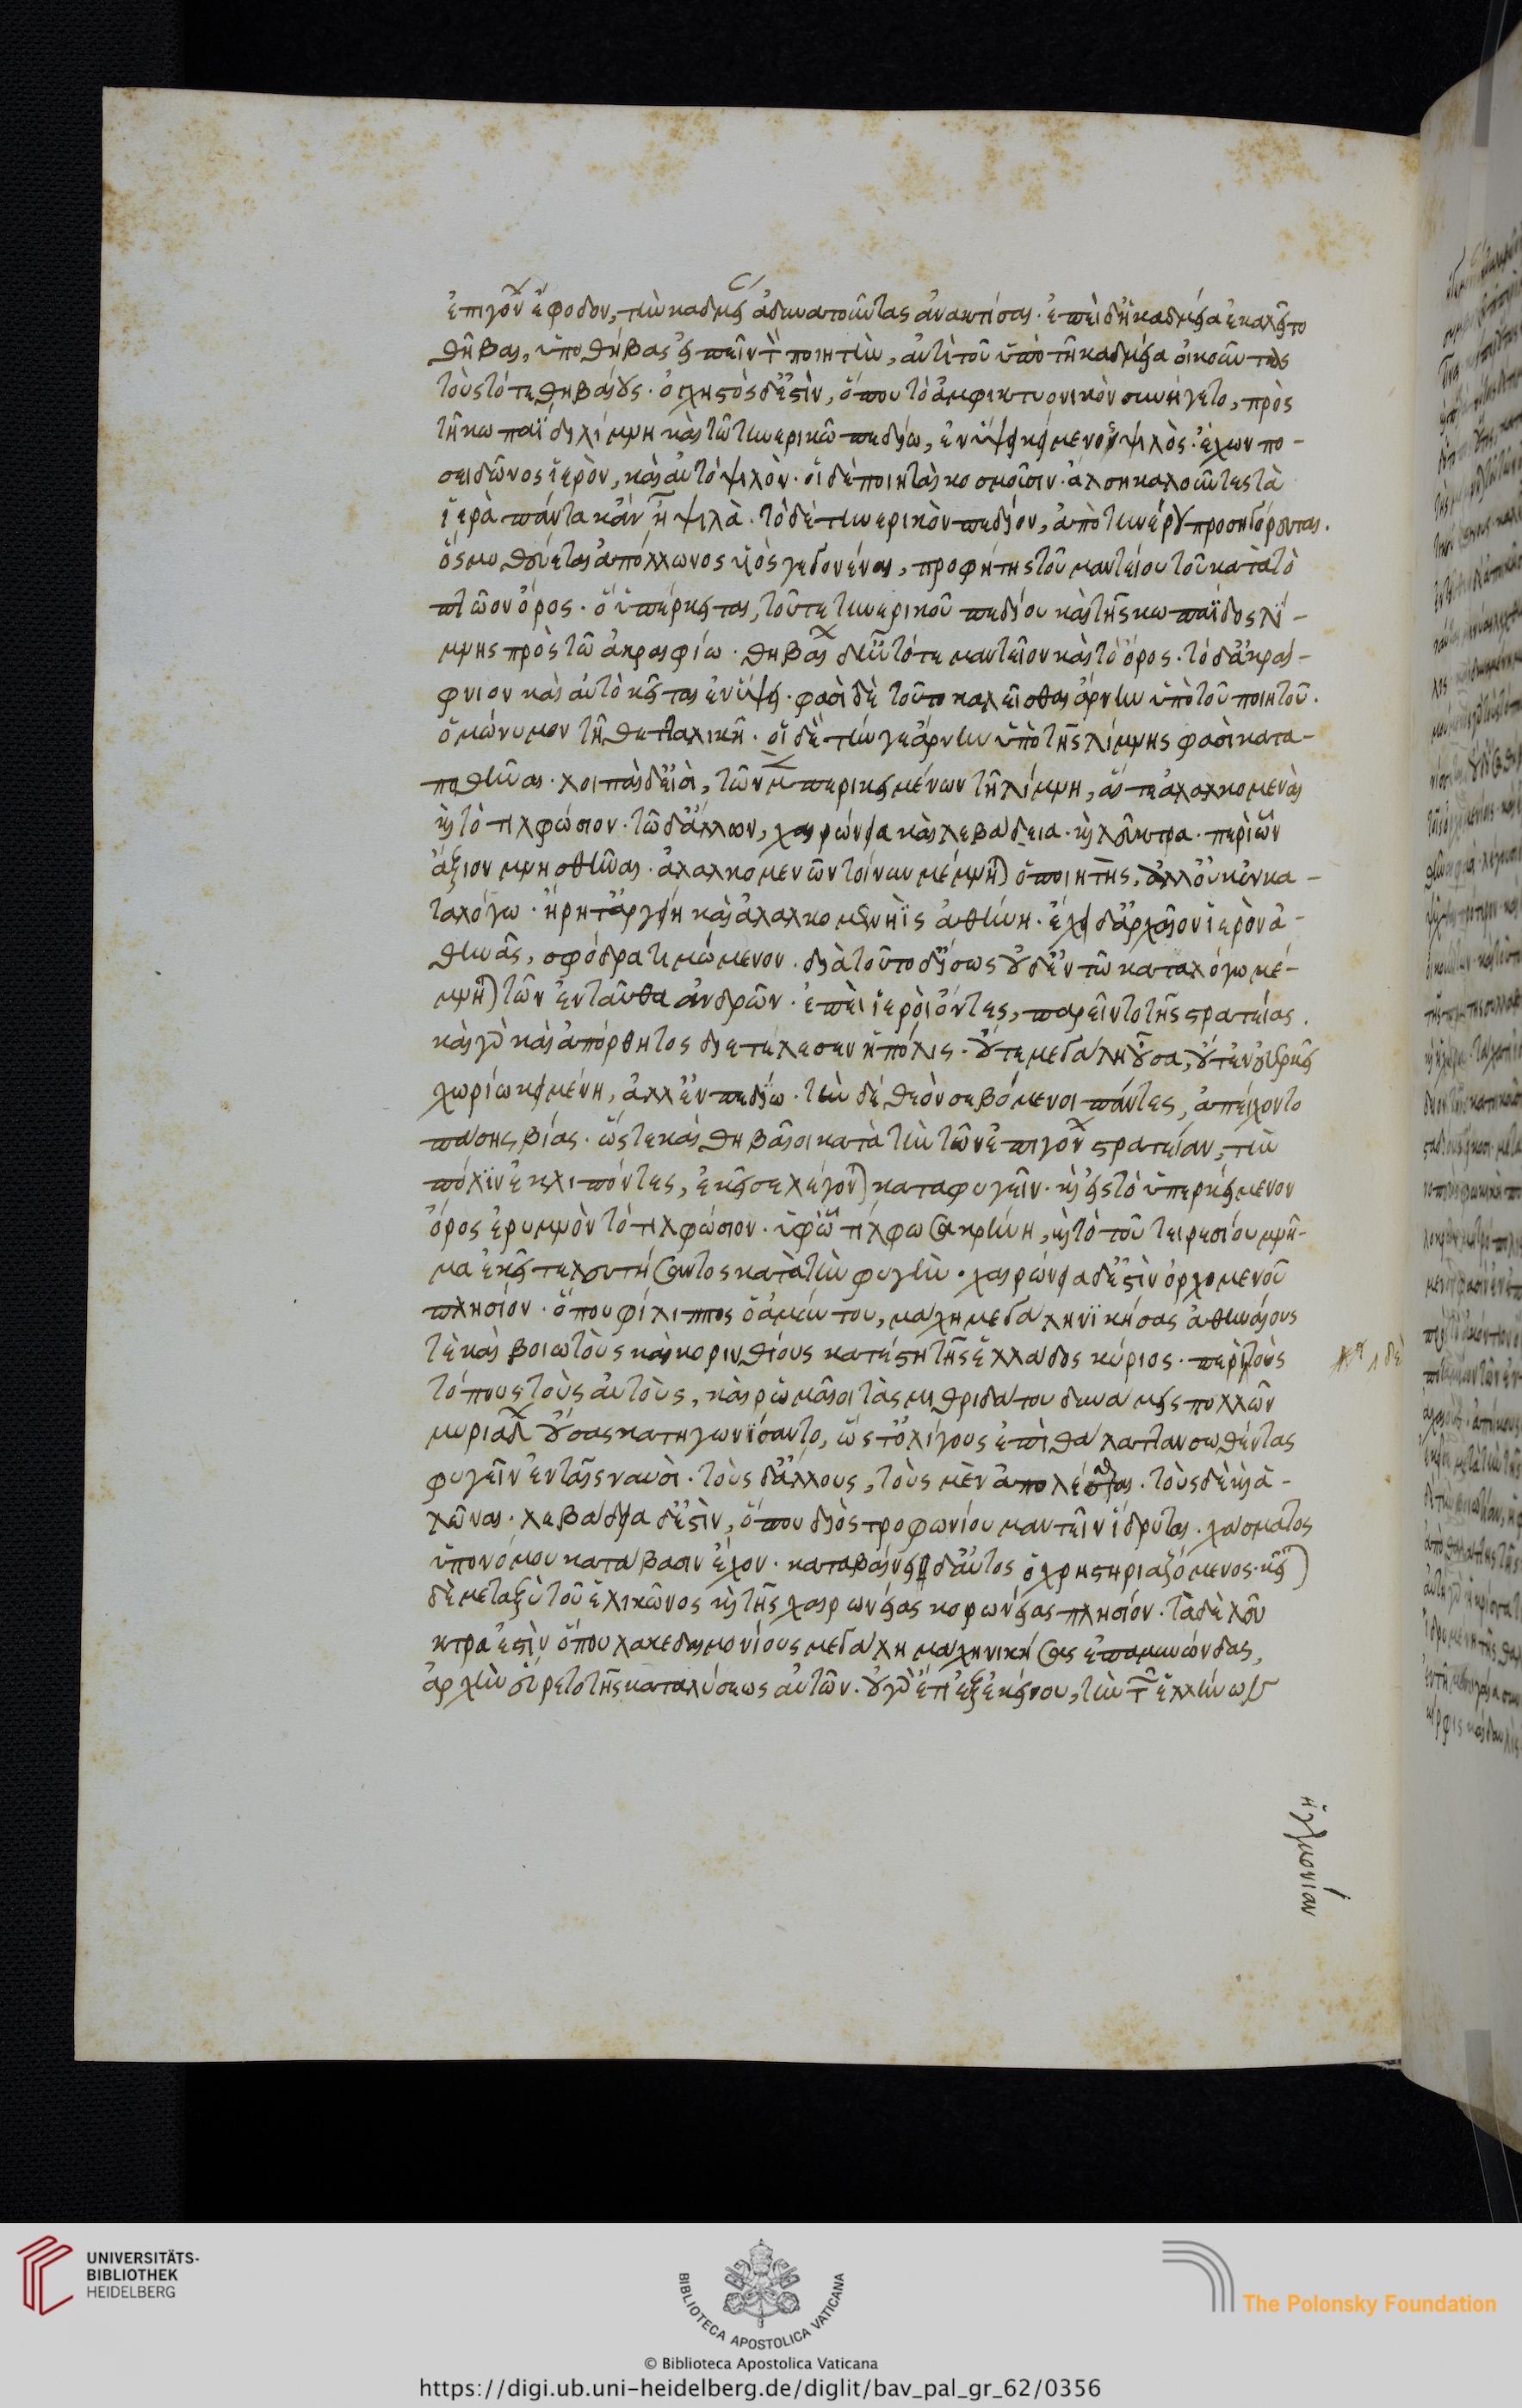 ἐπιγόνων ἔφοδον, τὴν καδμείαν ἀδυνατοῦντας ἀνακτίσαι· ἐπειδὴ καδμεία ἐκαλεῖτο
θῆβαι, ὑπὸ θήβας εἰπεῖν τὸν ποιητὴν, ἀντὶ τοῦ ὑπὸ τῇ καδμεία οἰκοῦντας
τοὺς τότε θηβαίους· ὀγχηστὸς δ' ἐστὶν, ὅπου τὸ ἀμφικτυονικὸν συνήγετο, πρὸς
τῇ κωπαΐδι λίμνη καὶ τῶ τηνερικῶ πεδίω, ἐν ὕψει κείμενος ψιλὸς· ἔχων πο-
σειδῶνος ἱερὸν, καὶ αὐτὸ ψιλὸν· οἱ δὲ ποιηταὶ κοσμοῦσιν· ἄλση καλοῦντες τὰ
ἱερὰ πάντα κἂν ᾖ ψιλὰ· τὸ δὲ τηνερικὸν πεδίον, ἀπὸ τηνέρου προσηγόρευται.
ὃς μυθεύεται ἀπόλλωνος υἱὸς γεγονέναι, προφήτης τοῦ μαντείου τοῦ κατὰ τὸ
πτῶον ὄρος· ὃ ὑπέρκειται, τοῦ τε τηνερικοῦ πεδίου καὶ τῆς κωπαΐδος λί-
μνης πρὸς τῶ ἀκραιφίω· θηβαίων δ' ἦν τό τε μαντεῖον καὶ τὸ ὄρος· τὸ δ' ἀκραί-
φνιον καὶ αὐτὸ κεῖται ἐν ὕψει· φασὶ δὲ τοῦτο καλεῖσθαι ἄρνην ὑπὸ τοῦ ποιητοῦ.
ὁμώνυμον τῇ θετταλικῇ· οἱ δὲ τήν γε ἄρνην ὑπὸ τῆς λίμνης φασὶ κατα-
ποθῆναι· λοιπαὶ δ' εἰσὶ, τῶν μὲν περικειμένων τῇ λίμνη, αἵ τε ἀλαλκομεναὶ
καὶ τὸ τιλφώσιον· τῶν δ' ἄλλων, χαιρώνεια καὶ λεβάδεια· καὶ λεῦκτρα· περὶ ὧν
ἄξιον μνησθῆναι· ἀλαλκομενῶν τοίνυν μέμνηται ὁ ποιητὴς, ἀλλ' οὐκ ἐν κα-
ταλόγω· ἥρη τ' ἀργείη καὶ ἀλαλκομενηῒς ἀθήνη· ἔχει δ' ἀρχαῖον ἱερὸν ἀ-
θηνᾶς, σφόδρα τιμώμενον· διὰ τοῦτο δ' ἴσως οὐδ' ἐν τῶ καταλόγω μέ-
μνηται τῶν ἐντεῦθα ἀνδρῶν· ἐπεὶ ἱεροὶ ὄντες, παρεῖντο τῆς στρατείας.
καὶ γὰρ καὶ ἀπόρθητος διετέλεσεν ἡ πόλις· οὔτε μεγάλη οὖσα, οὔτ' ἐν εὐερκεῖ
χωρίω κειμένη, ἀλλ' ἐν πεδίω· τὴν δὲ θεὸν σεβόμενοι πάντες, ἀπείχοντο
πάσης βίας· ὥστε καὶ θηβαῖοι κατὰ τὴν τῶν ἐπιγόνων στρατείαν, τὴν
πόλιν ἐκλιπόντες, ἐκεῖσε λέγονται καταφυγεῖν· καὶ εἰς τὸ ὑπερκείμενον
ὄρος ἐρυμνὸν τὸ τιλφώσιον· ὑφ' ᾧ τιλφῶσα κρήνη, καὶ τὸ τοῦ τειρεσίου μνῆ-
μα ἐκεῖ τελευτήσαντος κατὰ τὴν φυγὴν· χαιρώνεια δ' ἐστὶν ὀρχομενοῦ
πλησίον· ὅπου φίλιππος ὁ ἀμύντου, μάχη μεγάλη νικήσας ἀθηναίους
τὲ καὶ βοιωτοὺς καὶ κορινθίους κατέστη τῆς ἑλλάδος κύριος· περὶ τοὺς
τόπους τοὺς αὐτοὺς, καὶ ῥωμαῖοι τὰς μιθριδάτου δυνάμεις πολλῶν
μυριάδων οὔσας κατηγωνίσαντο, ὥστ' ὀλίγους ἐπὶ θάλατταν σωθέντας
φυγεῖν ἐν ταῖς ναυσὶ· τοὺς δ' ἄλλους, τοὺς μὲν ἀπολέσθαι· τοὺς δὲ καὶ ἁ-
λῶναι· λεβάδεια δ' ἐστὶν, ὅπου διὸς τροφωνίου μαντεῖον ἵδρυται· χάσματος
ὑπονόμου κατάβασιν ἔχον· καταβαίνει δ' αὐτὸς ὁ χρηστηριαζόμενος· κεῖται
δὲ μεταξὺ τοῦ ἑλικῶνος καὶ τῆς χαιρωνείας κορωνείας πλησίον· τὰ δὲ λεῦ
κτρα ἐστὶν ὅπου λακεδαιμονίους μεγάλη μάχη νικήσας ἐπαμινώνδας,
ἀρχὴν εὕρετο τῆς καταλύσεως αὐτῶν· οὐ γὰρ ἔτι ἐξ ἐκείνου, τὴν τῶν ἑλλήνων
ἡγεμονίαν
UNIVERSITÄTS-
BIBLIOTHEK
HEIDELBERG
BIBLIOTECA APOSTOLICA VATICANA
The Polonsky Foundation
© Biblioteca Apostolica Vaticana
https://digi.ub.uni-heidelberg.de/diglit/bav_pal_gr_62/0356